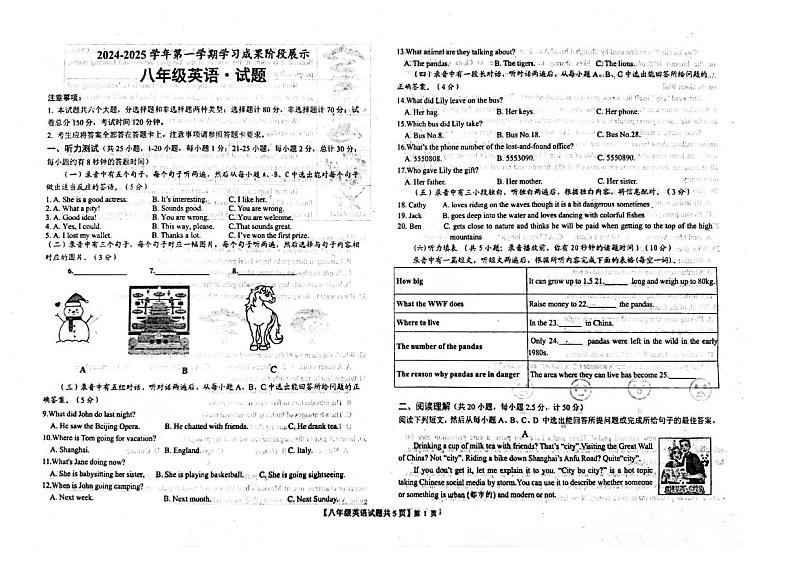 2024-2025 学年第一学期学习成果阶段展示
八年级英语·试题
注意事项：
1. 本试题共六个大题，分选择题和非选择题两种类型；选择题计 80 分，非选择题计 70 分，试
卷总分 150 分，考试时间 120 分钟。
2. 考生应将答案全部答在答题卡上，注意事项请参照答题卡要求。
一、听力测试（共 25 小题，1-20 小题，每小题 1 分；21-25 小题，每小题 2 分，总计 30 分；
每小题约有 8 秒钟的答题时间）
（一）录音中有五个句子，每个句子听两遍，然后从每小题 A、B、C 中选出能对每个句子
做出适当反应的答语。（5 分）
1. A. She is a good actress. B. It's interesting. C. I like her.
2. A. What a pity! B. Sounds good. C. Of course.
3. A. Good idea! B. You are wrong. C. You are welcome.
4. A. Yes, I could. B. This way, please. C. That sounds great.
5. A. I lost my wallet. B. Thanks a lot. C. I've won the first prize.
（二）录音中有三个句子，每个句子对应一幅图片，每个句子听两遍，然后选择与句子内容相
对应的图片。（3 分）
6.________ 7.________ 8.________
A B C
（三）录音中有五组对话，听对话两遍后，从每小题 A、B、C 中选出能回答所给问题的正
确答案。（5 分）
9.What did John do last night?
A. He saw the Beijing Opera. B. He chatted with friends. C. He drank tea.
10.Where is Tom going for vacation?
A. Shanghai. B. England. C. Italy.
11.What's Jane doing now?
A. She is babysitting her sister. B. She is playing basketball. C. She is going sightseeing.
12.When is John going camping?
A. Next week. B. Next month. C. Next Sunday.
13.What animal are they talking about?
A. The pandas. C. The lions.
（四）录音中有一段长对话，听对话两遍后，从每小题 A、B、C 中选出能回答所给问题的
正确答案。（4 分）
14.What did Lily leave on the bus?
A. Her bag. B. Her keys. C. Her phone.
15.Which bus did Lily take?
A. Bus No.8. B. Bus No.18. C. Bus No.28.
16.What's the phone number of the lost-and-found office?
A. 5550808. B. 5553090. C. 5550890.
17.Who gave Lily the gift?
A. Her father. B. Her mother. C. Her sister.
（五）录音中有三小段独白，听独白两遍后，根据独白内容，将信息配对。（3 分）
18. Cathy A. loves riding on the waves though it is a bit dangerous sometimes
19. Jack B. goes deep into the water and loves dancing with colorful fishes
20. Ben C. gets close to nature and thinks he will be paid when getting to the top of the high
mountains
（六）听力填表（共 5 小题；录音播放前，你有 20 秒钟的读题时间）（10 分）
录音中有一篇短文，听短文两遍后，根据所听内容完成下面的表格(每空一词)。
How big It can grow up to 1.5 21.______ long and weigh up to 80kg.
What the WWF does Raise money to 22.______ the pandas.
Where to live In the 23.______ in China.
The number of the pandas Only 24.______ pandas were left in the wild in the early
1980s.
The reason why pandas are in danger The area where they can live has become 25.______
二、阅读理解（共 20 小题，每小题 2.5 分，计 50 分）
阅读下列短文，然后从每小题 A、B、C、D 中选出能回答所提问题或完成所给句子的最佳答案。
A
Drinking a cup of milk tea with friends? That's "city". Visiting the Great Wall
of China? Not "city". Riding a bike down Shanghai's Anfu Road? Quite "city".
If you don't get it, let me explain it to you. "City bu city?" is a hot topic
taking Chinese social media by storm. You can use it to describe whether someone
or something is urban (都市的) and modern or not.
【八年级英语试题共 5 页】第 1 页